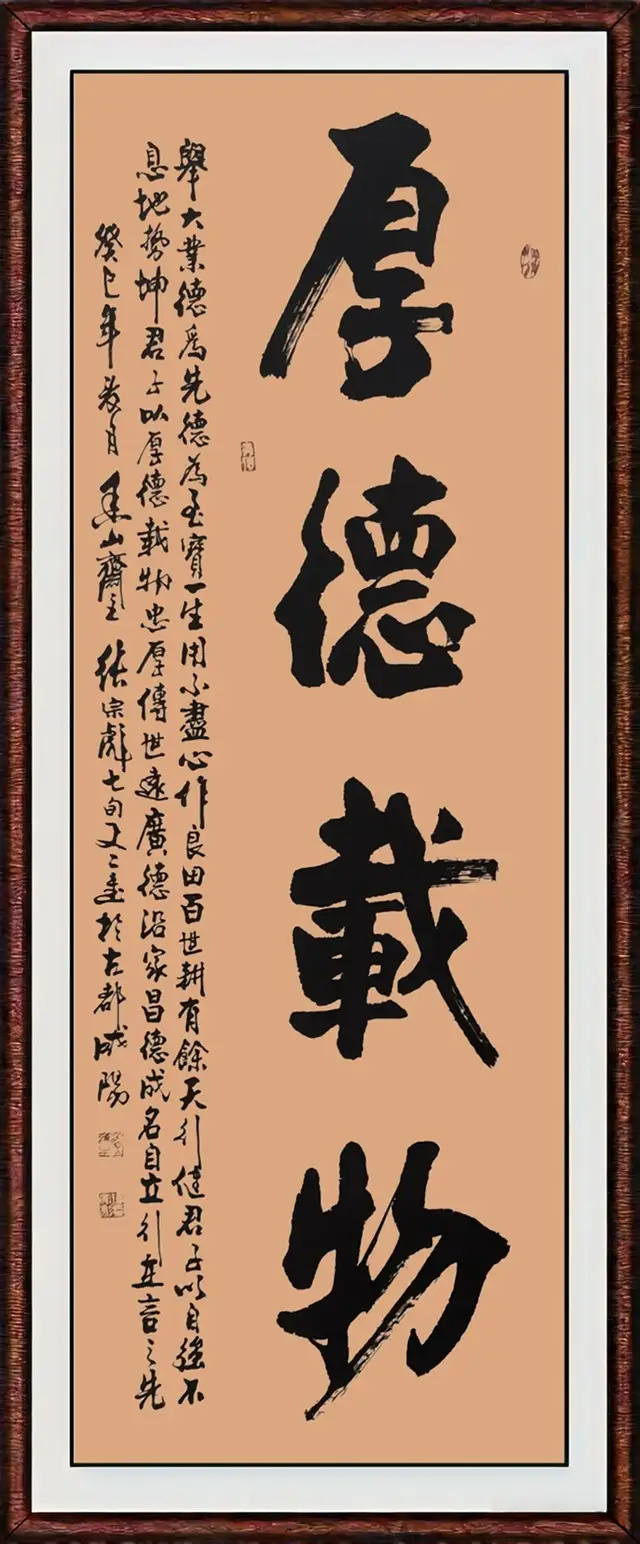 厚德載物
舉大業德爲先德為至寶一生用不盡心作良田百世耕有餘天行健君子以自強不
息地勢坤君子以厚德載物忠厚傳世遠廣德沿家昌德成名自立行在言之先
癸巳年 月 山齋主 張宗彪七旬又二書於古都咸陽